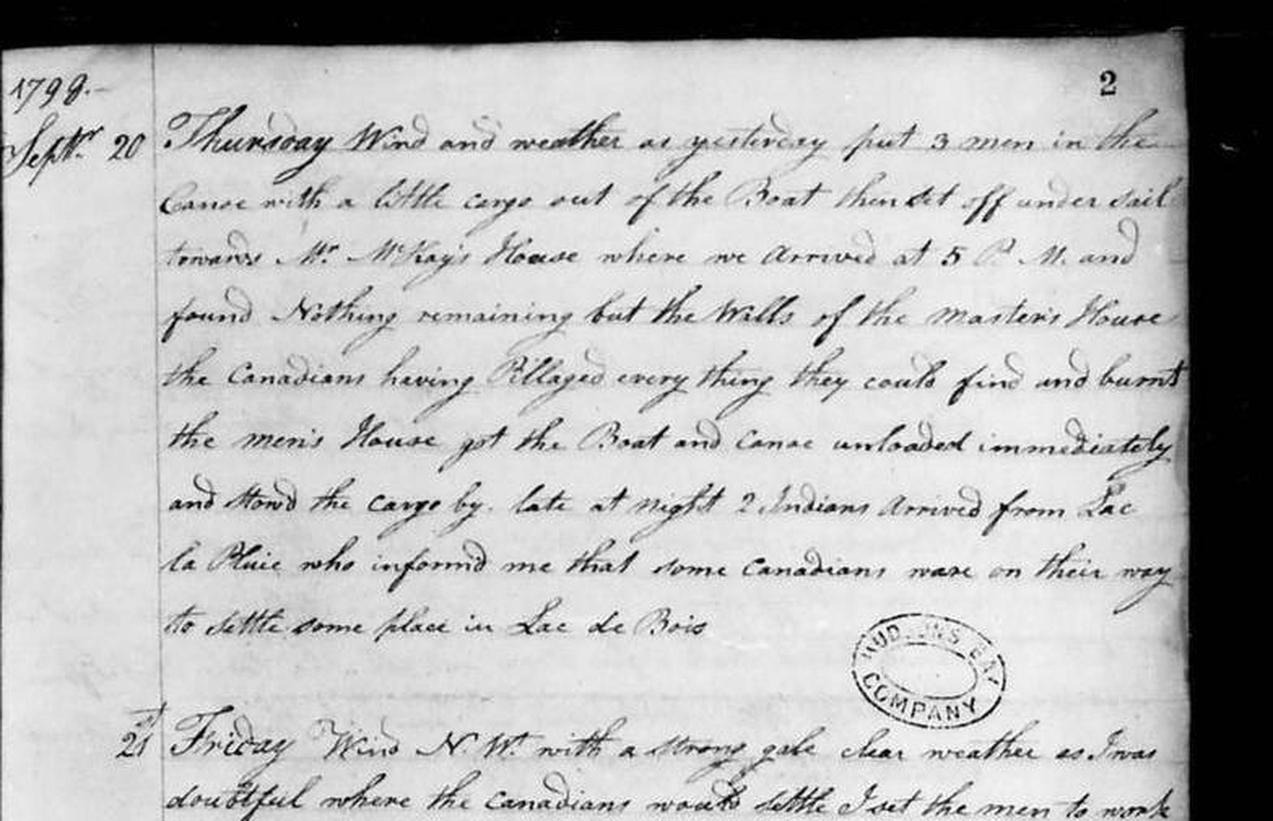 2
1798.
Septr. 20 Thursday Wind and weather as yesterday put 3 men in the
Canoe with a little cargo out of the Boat then set off under sail
towards Mr. McKay's House where we Arrived at 5 P. M. and
found Nothing remaining but the Walls of the Master's House
the Canadians having Pillaged every thing they could find and burnt
the men's House got the Boat and Canoe unloaded immediately
and stow'd the cargo by. late at night 2 Indians Arrived from Lac
la Pluie who inform'd me that some Canadians ware on their way
to settle some place in Lac de Bois
HUDSONS BAY
COMPANY
21st Friday Wind N. Wt. with a strong gale clear weather as I was
doubtful where the Canadians would settle I set the men to work